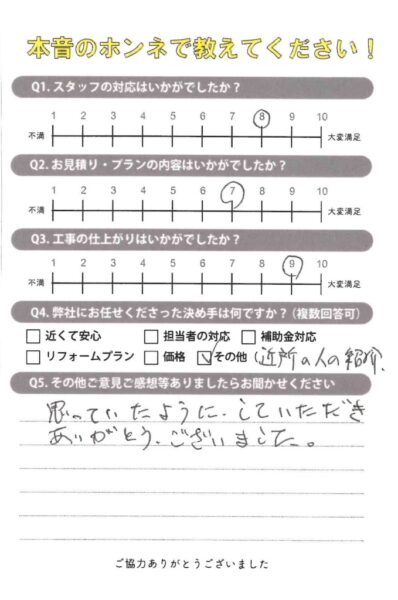 本音のホンネで教えてください！
Q1. スタッフの対応はいかがでしたか？
1 2 3 4 5 6 7 8 9 10
不満 大変満足
Q2. お見積り・プランの内容はいかがでしたか？
1 2 3 4 5 6 7 8 9 10
不満 大変満足
Q3. 工事の仕上がりはいかがでしたか？
1 2 3 4 5 6 7 8 9 10
不満 大変満足
Q4. 弊社にお任せくださった決め手は何ですか？（複数回答可）
近くて安心 担当者の対応 補助金対応
リフォームプラン 価格 その他（近所の人の紹介.
Q5. その他ご意見ご感想等ありましたらお聞かせください
思っていたように、していただき
ありがとう、ございました。
ご協力ありがとうございました